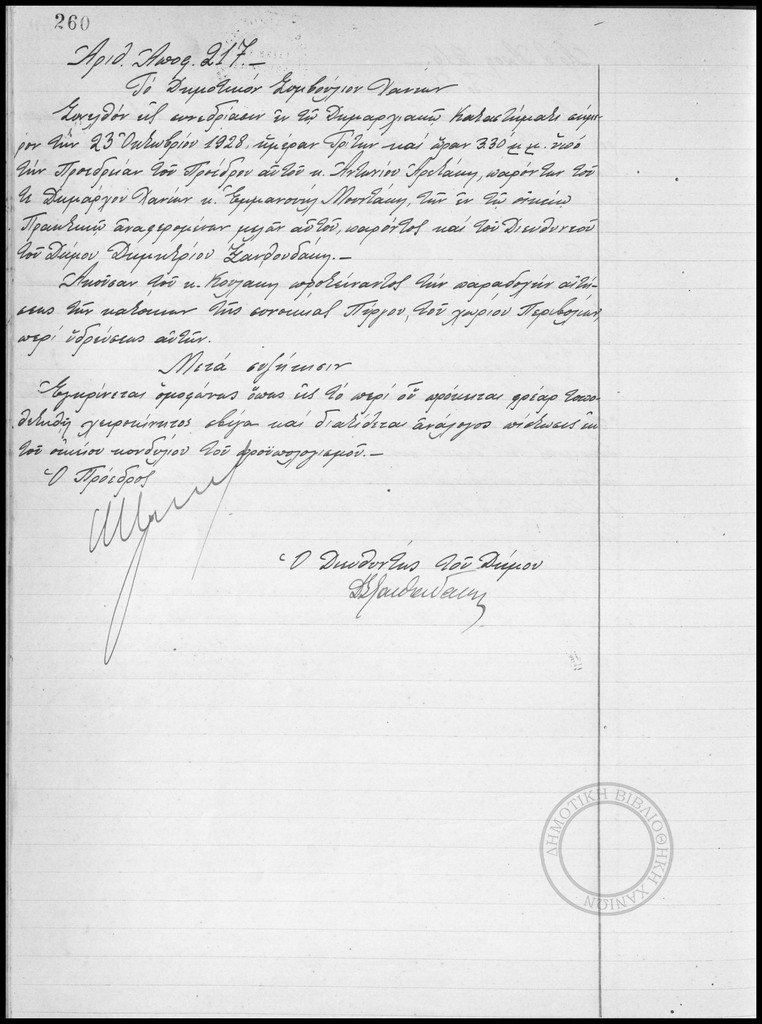 260
Ἀριθ. Ἀποφ. 217.-
Τό Δημοτικόν Συμβούλιον Χανίων
Συνελθόν εἰς συνεδρίασιν ἐν τῷ Δημαρχιακῷ Καταστήματι σήμε-
ρον τήν 23 Ὀκτωβρίου 1928, ἡμέραν Τρίτην καί ὥραν 3.30 μ.μ. ὑπό
τήν Προεδρείαν τοῦ Προέδρου αὐτοῦ κ. Ἀντωνίου παρόντων τοῦ
τε Δημάρχου Χανίων κ. Ἐμμανουήλ Μουντάκη, τῶν ἐν τῷ οἰκείῳ
Πρακτικῷ ἀναφερομένων μελῶν αὐτοῦ, παρόντος καί τοῦ Διευθυντοῦ
τοῦ Δήμου Δημητρίου Ξανθουδάκη.-
Ἀκοῦσαν τοῦ κ. προτείναντος τήν παραδοχήν αἰτή-
σεως τῶν κατοίκων τῆς συνοικίας Πύργου, τοῦ χωρίου Περιβολίων,
περί ὑδρεύσεως αὐτῶν.
Μετά συζήτησιν
Ἐγκρίνεται ὁμοφώνως ὅπως εἰς τό περί οὗ πρόκειται φρέαρ τοπο-
θετηθῇ χειροκίνητος καί διατίθεται ἀνάλογος πίστωσις ἐκ
τοῦ οἰκείου κονδυλίου τοῦ προϋπολογισμοῦ.-
Ὁ Πρόεδρος
Ὁ Διευθυντής τοῦ Δήμου
ΔΞανθουδάκης
ΔΗΜΟΤΙΚΗ ΒΙΒΛΙΟΘΗΚΗ ΧΑΝΙΩΝ